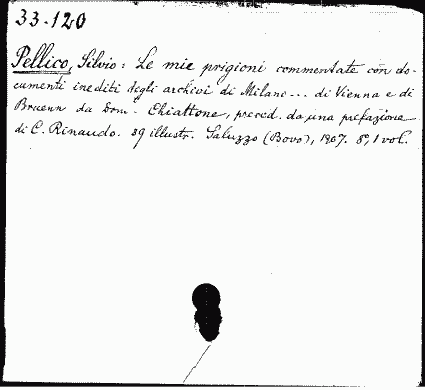 33-120
Pellico, Silvio: Le mie prigioni commentate con do-
cumenti inediti degli archivi di Milano... di Vienna e di
Bruenn da Dom. Chiattone, preced. da una prefazione
di C. Rinaudo. 39 illustr. Saluzzo (Bovo), 1907. 8°, 1 vol.